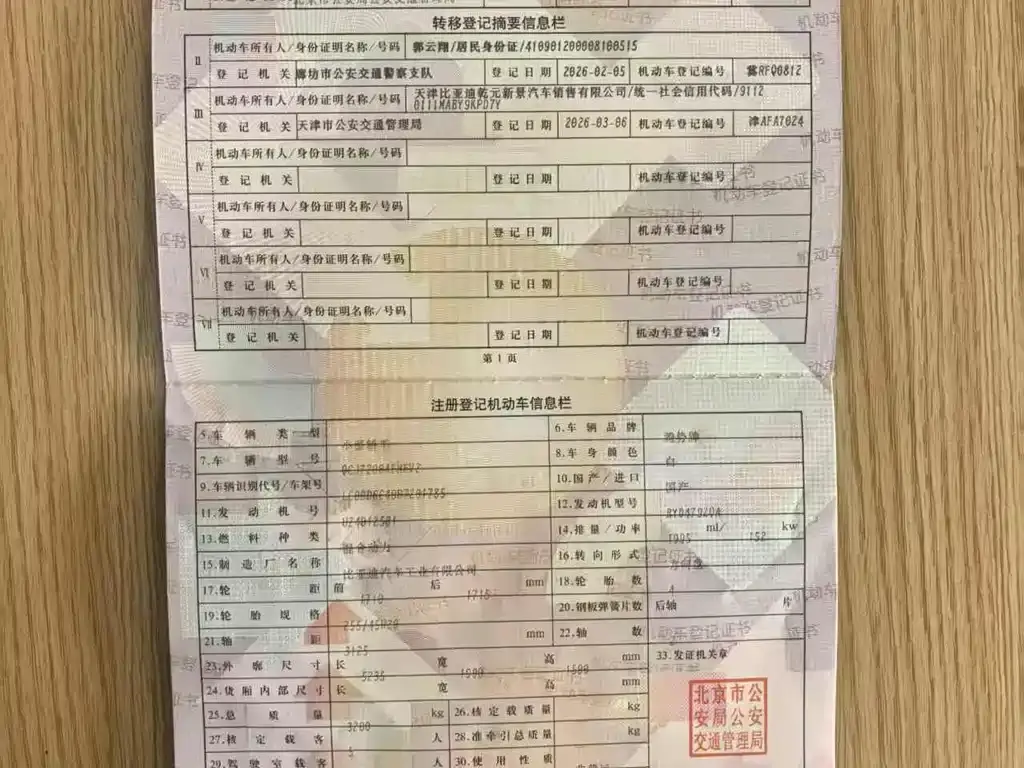 转移登记摘要信息栏
Ⅱ 机动车所有人/身份证明名称/号码 郭云翔/居民身份证/410901200008100515
登记机关 廊坊市公安交通警察支队 登记日期 2026-02-05 机动车登记编号 冀RFQ0812
Ⅲ 机动车所有人/身份证明名称/号码 天津比亚迪乾元新景汽车销售有限公司/统一社会信用代码/9112
0111MABY9KPD7Y
登记机关 天津市公安交通管理局 登记日期 2026-03-06 机动车登记编号 津AFA7024
Ⅳ 机动车所有人/身份证明名称/号码
登记机关 登记日期 机动车登记编号
Ⅴ 机动车所有人/身份证明名称/号码
登记机关 登记日期 机动车登记编号
Ⅵ 机动车所有人/身份证明名称/号码
登记机关 登记日期 机动车登记编号
Ⅶ 机动车所有人/身份证明名称/号码
登记机关 登记日期 机动车登记编号
第1页
注册登记机动车信息栏
5.车辆类型 6.车辆品牌
7.车辆型号 8.车身颜色 白
9.车辆识别代号/车架号 10.国产/进口 国产
11.发动机号 12.发动机型号
13.燃料种类 混合动力 14.排量/功率 ml/ kw
15.制造厂名称 比亚迪汽车工业有限公司 16.转向形式
17.轮距 前 1710 后 1715 mm 18.轮胎数 4
19.轮胎规格 255/45R20 20.钢板弹簧片数 后轴 片
21.轴距 3125 mm 22.轴数
23.外廓尺寸 长 5235 宽 高 mm 33.发证机关章
24.货厢内部尺寸 长 宽 高 mm
25.总质量 3200 kg 26.核定载质量 kg
27.核定载客 5 人 28.准牵引总质量 kg
29.驾驶室载客 人 30.使用性质
北京市公
安局公安
交通管理局